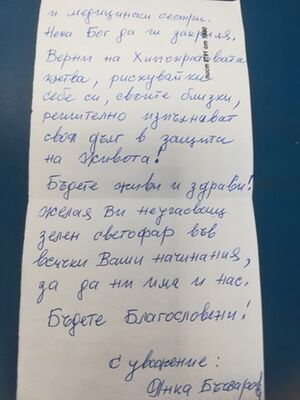 и медицински сестри.
Нека Бог да ги закриля,
Верни на Хипократовата
клетва, рискувайки
себе си, своите близки,
решително изпълнават
своя дълг в защита
на живота!
Бъдете живи и здрави!
Желая Ви неугасващ
зелен светофар във
всички Ваши начинания,
за да ни има и нас.
Бъдете Благословени!
С уважение:
Янка Бъчваров